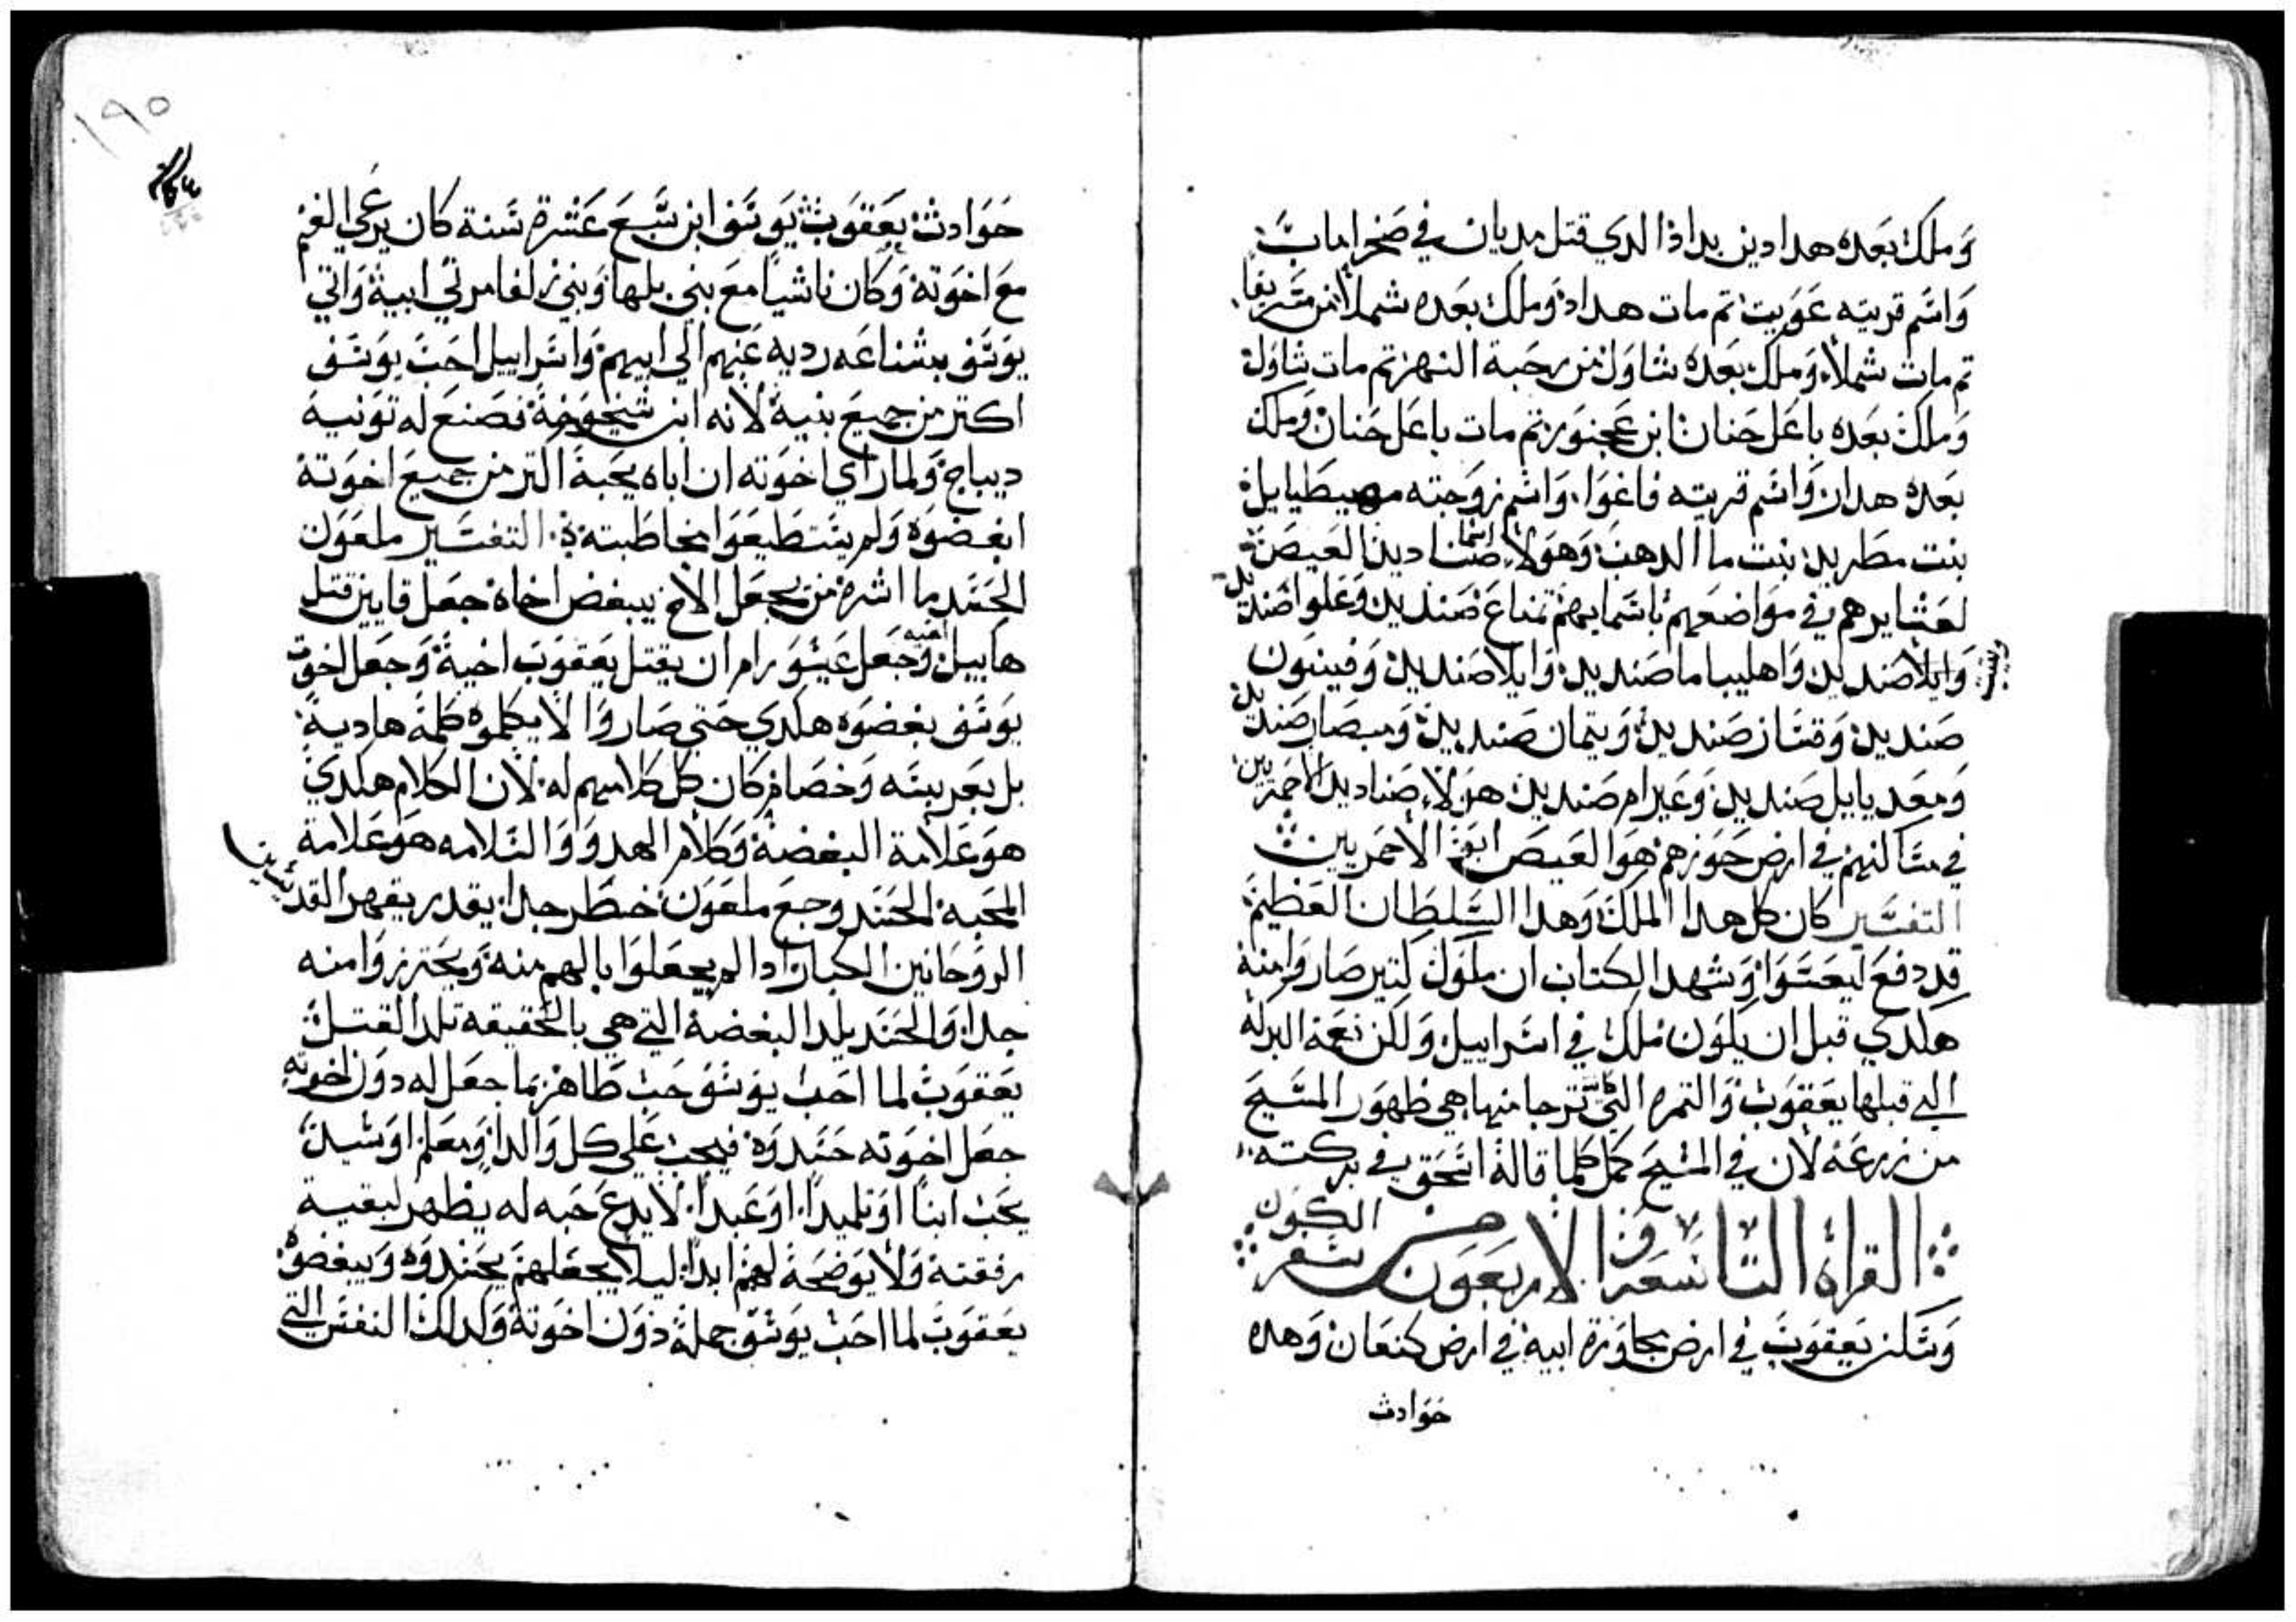 وملك بعده هدادين بداذا الدي قتل مديان في صحرا ماب
واسم قريته عويت تم مات هداد وملك بعده شملا من مسريفا
تم مات شملا وملك بعده شاول من رحبة النهر تم مات شاول
وملك بعده باعل حنان ابن عجنور تم مات باعل حنان وملك
بعده هدان واسم قريته فاغوا واسم زوجته مهيطيايل
بنت مطريد بنت ما الدهب وهولا اسما صناديد العيص
لعشايرهم في مواضعهم باسمايهم تمناع صنديد وعلوا صنديد
وايلا صنديد واهليباما صنديد وايلا صنديد وفينون
صنديد وقناز صنديد ويتمان صنديد ومبصار صنديد
ومعديايل صنديد وعيرام صنديد هولا صناديد الاحمريين
في مساكنهم في ارض حوزهم هوا العيص ابو الاحمريين
التفسير كان كل هدا الملك وهدا السلطان العظيم
قد دفع ليعسوا وشهد الكتاب ان ملوك كتير صاروا منه
هكدي قبل ان يكون ملك في اسراييل ولكن نعمة البركه
التي قبلها يعقوب والتمره التي ترجا منها هي ظهور المسيح
من زرعه لان في المسيح كمل كلما قاله اسحق في بركته
القراه التاسعه والاربعون من سفر الكون
وسكن يعقوب في ارض مجاورة ابيه في ارض كنعان وهده
حوادث
١٩٥
حوادث يعقوب يوسف ابن سبع عشرة سنة كان يرعي الغنم
مع اخوته وكان ناشيا مع بني بلها وبني زلفا مرتي ابيه واتي
يوسف بشناعه رديه عنهم الي ابيهم واسراييل احب يوسف
اكتر من جميع بنيه لانه ابن شيخوخة فصنع له تونية
ديباج ولما راي اخوته ان اباه يحبه اكتر من جميع اخوته
ابغضوه ولم يستطيعوا مخاطبته التفسير ملعون
الحسد ما اشره من يجعل الاخ يبغض اخاه جعل قايين قتل
هابيل اخيه وجعل عيسو رام ان يقتل يعقوب اخيه وجعل اخوة
يوسف بغضوه هكدي حتي صاروا لا يكلموه كلمة هادية
بل بعربسه وخصام كان كل كلامهم له لان الكلام هكدي
هو علامة البغضة وكلام الهدو والسلامه هو علامة
المحبه الحسد وجع ملعون خطر جدا يقدر يقهر القديسين
الروحانين الكبار ادا لم يجعلوا بالهم منه ويحترزوا منه
جدا والحسد يلد البغضة التي هي بالحقيقه تلد القتل
يعقوب لما احب يوسف حب ظاهر بما جعل له دون اخوته
جعل اخوته حسدوه فيجب علي كل والدا ومعلم او سيد
يحب ابنا او تلميدا او عبدا لا يدع حبه له يظهر لبقية
رفقته ولا يوضحه لهم ابدا ليلا يجعلهم يحسدوه ويبغضوه
يعقوب لما احب يوسف جملة دون اخوته وكدلك النفس التي